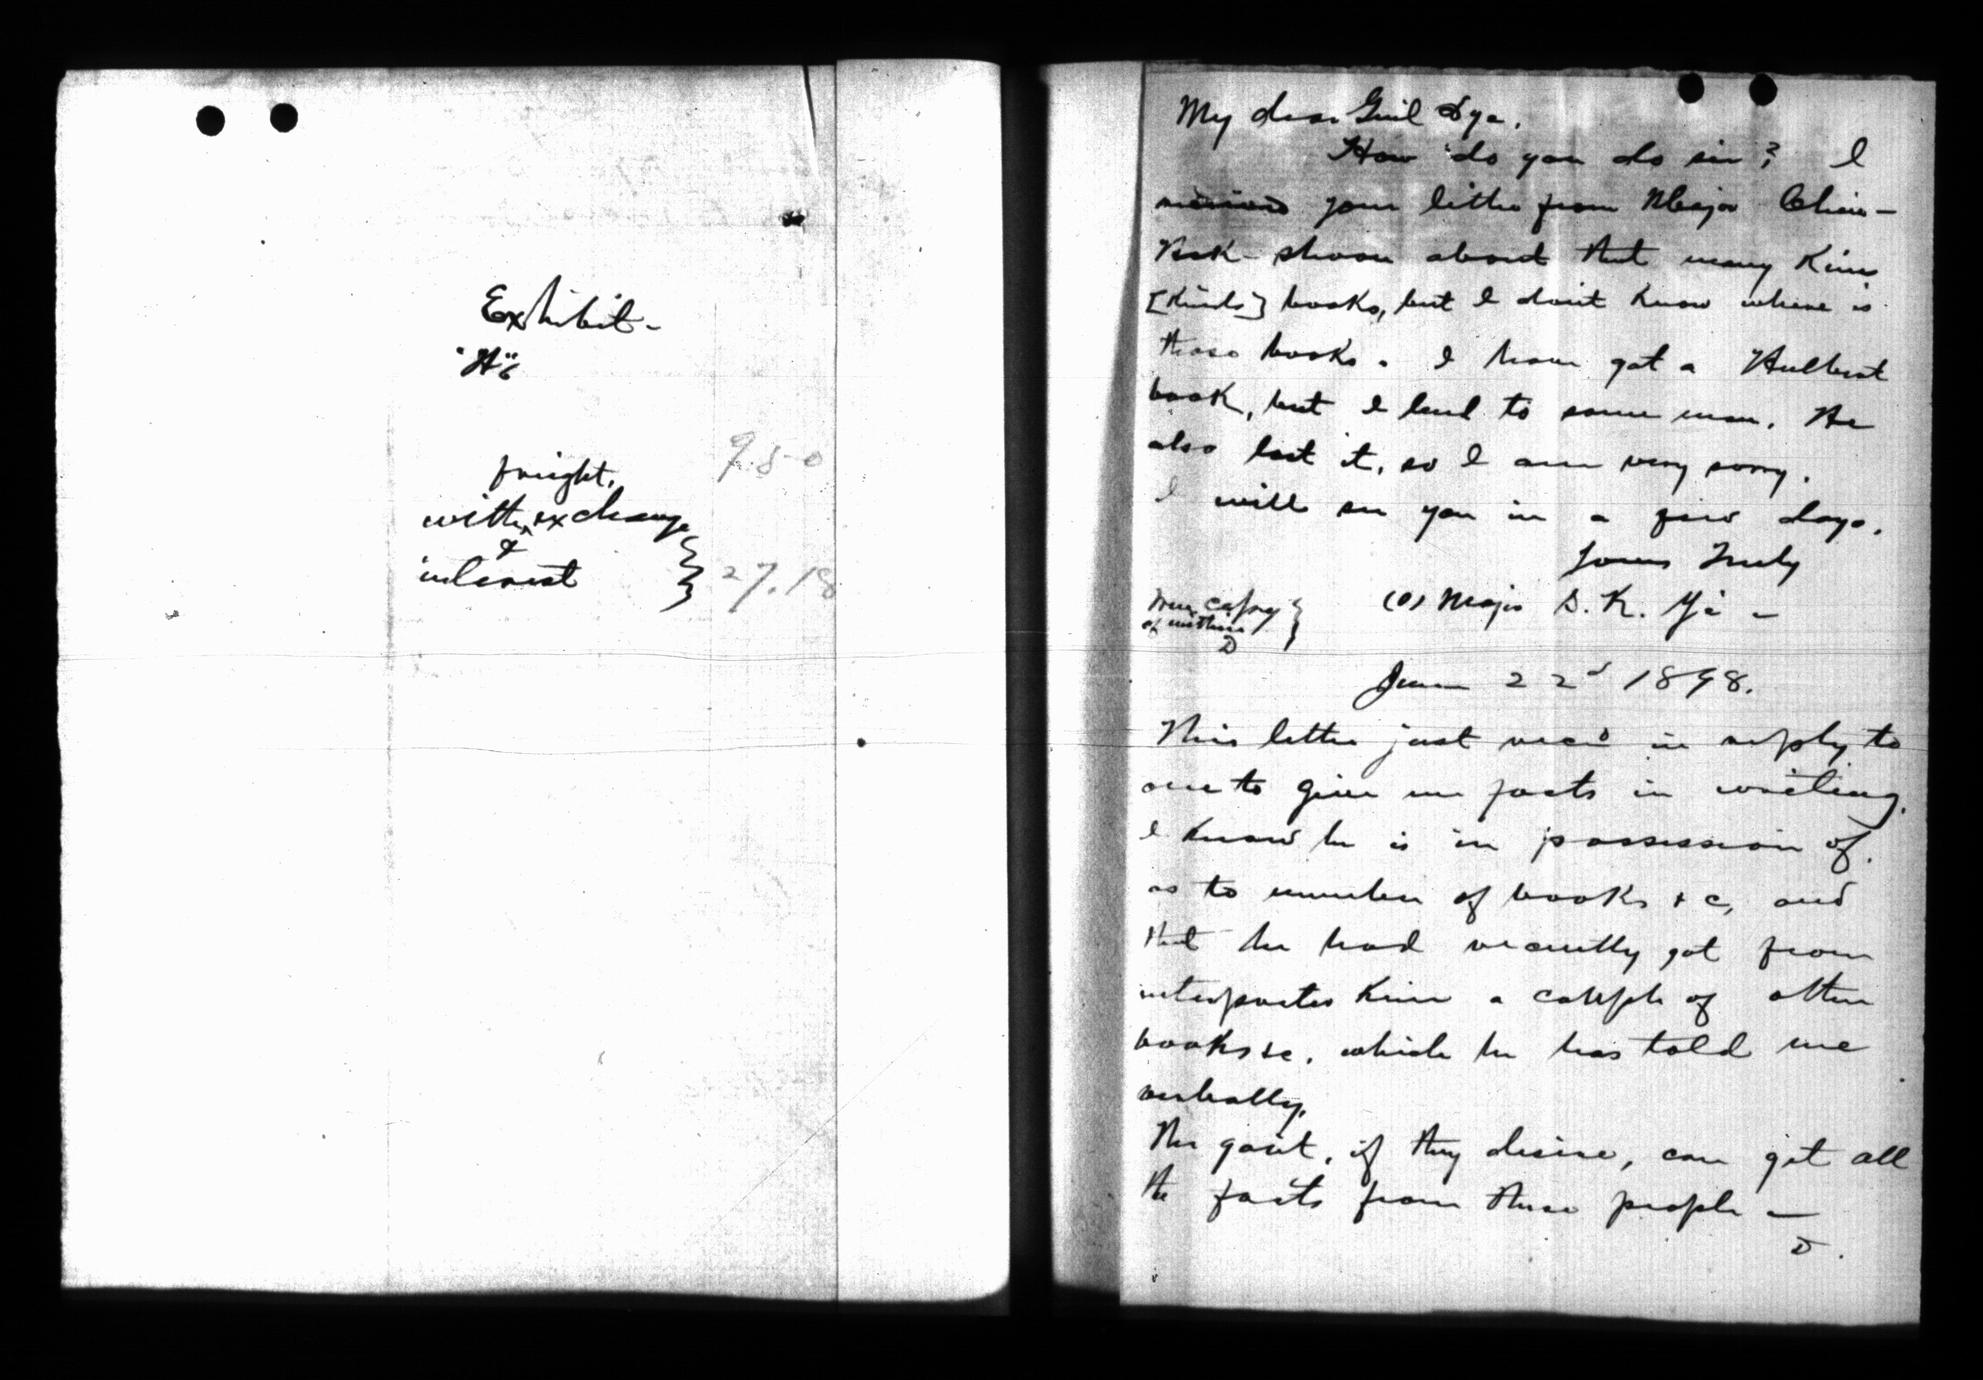 Exhibit-
"H"
9.50
freight,
with, exchange
&
interest } 27.18
My dear Genl Dye.
How do you do sir? I
received your letter from Major Chin-
Kok-shoon about that many Kins
[Kinds] books, but I don't know where is
those books. I have got a Hulbert
book, but I lend to some man. He
also lost it, so I am very sorry.
I will see you in a few days.
Yours Truly
(O) Major D. K. Yi -
True Copy
of within
D
June 22d 1898.
This letter just rec'd in reply to
one to give me facts in writing.
I know he is in possession of.
as to number of books &c, and
that he had recently got from
interpreter Kim a couple of other
books &c. which he has told me
verbally.
The govt, if they desire, can get all
the facts from these people -
D.